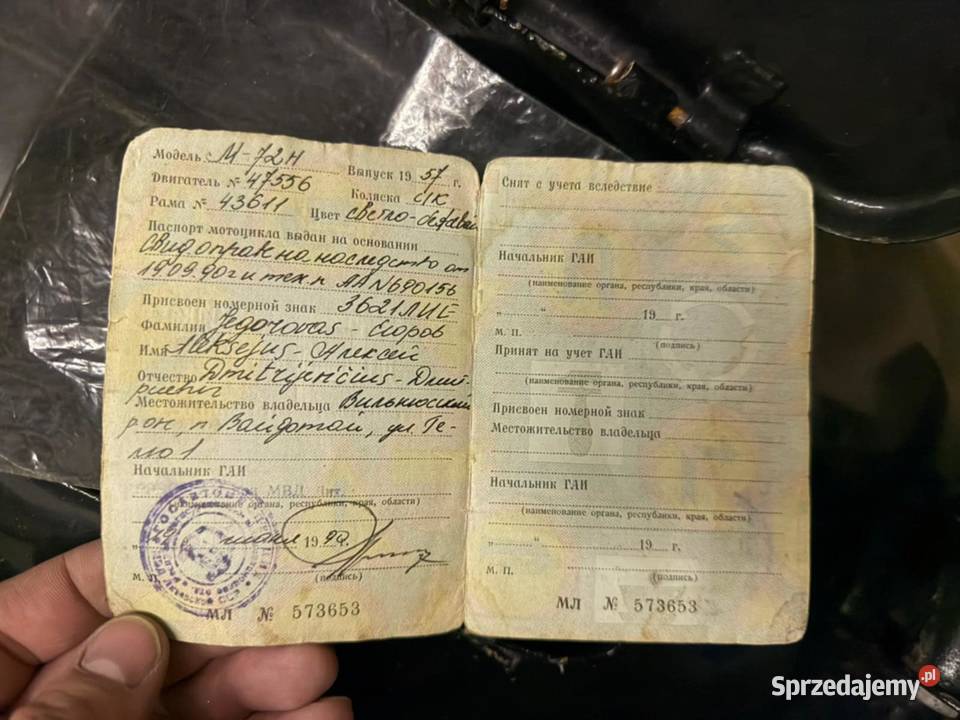 Модель М-72Н Выпуск 1957 г.
Двигатель № 47556 Коляска с/к
Рама № 43611 Цвет светло-
Паспорт мотоцикла выдан на основании
Свид. о прав на наследство от
19.09.90г и тех.п АА N 690156
Присвоен номерной знак 3621ЛИГ
Фамилия Jegorovas - Егоров
Имя Aleksejus - Алексей
Отчество Dmitrijevičius - Дмит-
риевич
Местожительство владельца Вильнюсский
р-он, п Вайдотай, ул Ге-
Начальник ГАИ
МВД Лит.
(наименование органа, республики, края, области)
19 90 г.
М. П. (подпись)
МЛ № 573653
Снят с учета вследствие
Начальник ГАИ
(наименование органа, республики, края, области)
„ “ 19 г.
М. П. (подпись)
Принят на учет ГАИ
(наименование органа, республики, края, области)
Присвоен номерной знак
Местожительство владельца
Начальник ГАИ
(наименование органа, республики, края, области)
„ “ 19 г.
М. П. (подпись)
МЛ № 573653
Sprzedajemy.pl